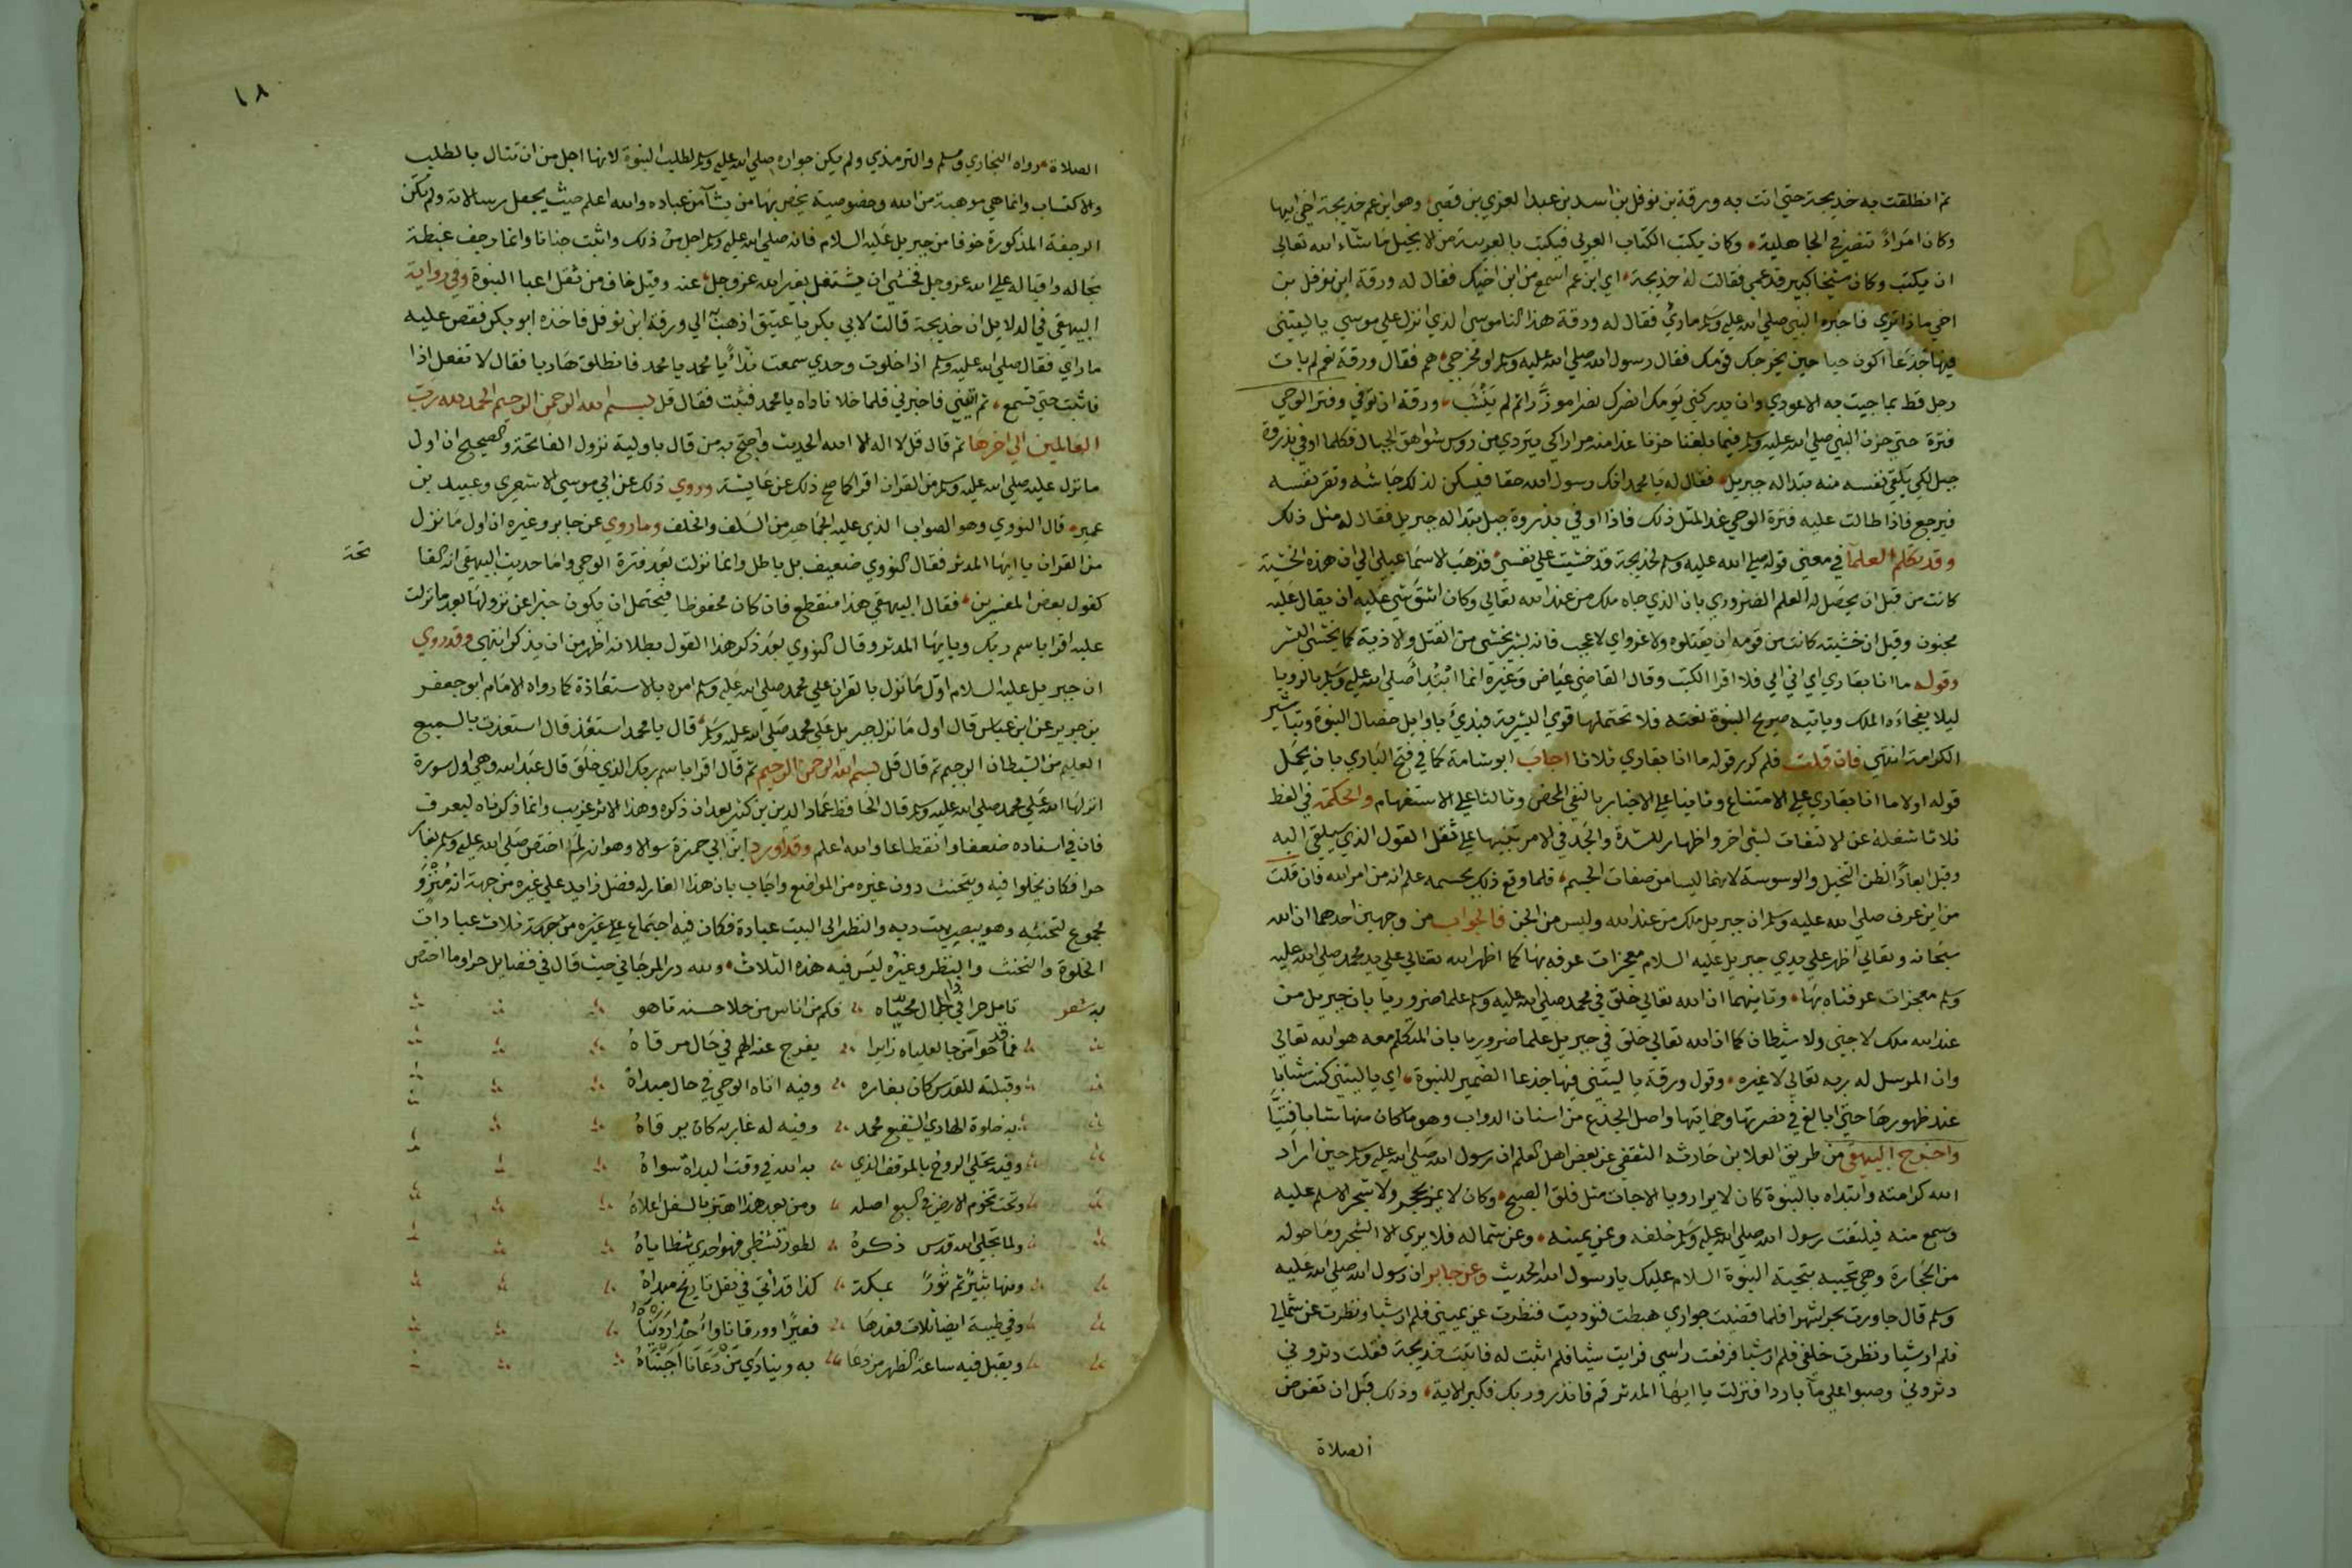 ثم انطلقت به خديجة حتى اتت به ورقة بن نوفل بن اسد بن عبد العزي بن قصي وهو ابن عم خديجة اخي ابيها
وكان امراءً تنصر في الجاهلية وكان يكتب الكتاب العربي فيكتب بالعربية من الانجيل ما شآء الله تعالى
ان يكتب وكان شيخا كبير قد عمي فقالت له خديجة اي ابن عم اسمع من ابن اخيك فقال له ورقة ابن نوفل بن
اخي ماذا تري فاخبره النبي صلي الله عليه وسلم ماراي فقال له ورقة هذا الناموسي الذي انزل علي موسي ياليتني
فيها جَذَعًا اكون حيا حين يخرجك قومك فقال رسول الله صلي الله عليه وسلم او مخرجي هم فقال ورقة نعم لم يات
رجل قط بما جيت به الا عودي وان يدركني يومك انصرك نصرا موزّرا ثم لم ينشب ورقة ان توفي وفتر الوحي
فترة حتي حزن النبي صلي الله عليه وسلم فيما بلغنا حزنا غدا منه مرارا كي يتردي من روس شواهق الجبال فكلما اوفي بذروة
جبل لكي يلقي نفسه منه تبدا له جبريل فقال له يا محمد انك رسول الله حقا فيسكن لذلك جاشه وتقر نفسه
فيرجع فاذا طالت عليه فترة الوحي غدا لمثل ذلك فاذا اوفي بذروة جبل تبدا له جبريل فقال له مثل ذلك
وقد تكلم العلمآ في معني قوله صلي الله عليه وسلم لخديجة قد خشيت علي نفسي فذهب الاسماعيلي الي ان هذه الخشية
كانت من قبل ان يحصل له العلم الضروري بان الذي جاه ملك من عند الله تعالي وكان اشق شي عليه ان يقال عليه
مجنون وقيل ان خشيته كانت من قومه ان يقتلوه ولا غرو اي لا عجب فانه بشر يخشي من القتل والاذية كما يخشي البشر
وقوله ما انا بقاري اي اني امي فلا اقرا الكتب وقال القاضي عياض وغيره انما ابتُدأ صلي الله عليه وسلم بالرويا
ليلا يفجاءه الملك وياتيه صريح النبوة بغته فلا تحتملها قوي البشرية فبديَ باوايل خصال النبوة وتباشير
الكرامة انتهي فان قلت فلم كرر قوله ما انا بقاري ثلاثا اجاب ابو شامة كما في فتح الباري بان يحمل
قوله اولا ما انا بقاري علي الامتناع وثانيا علي الاخبار بالنفي المحض وثالثا علي الاستفهام والحكمة في الغط
ثلاثا شغله عن الالتفات لشي اخر واظهار للشدة والجد في الامر تنبيها علي ثقل القول الذي سيلقي اليه
وقيل ابعاد الظن التخيل والوسوسة لانهما ليسا من صفات الجسم فلما وقع ذلك بجسمه علم انه من امر الله فان قلت
من اين عرف صلي الله عليه وسلم ان جبريل ملك من عند الله وليس من الجن فالجواب من وجهين احدهما ان الله
سبحانه وتعالي اظهر علي يدي جبريل عليه السلام معجزات عرفه بها كما اظهر الله تعالي علي يد محمد صلي الله عليه
وسلم معجزات عرفناه بها وثانيهما ان الله تعالي خلق في محمد صلي الله عليه وسلم علما ضروريا بان جبريل من
عند الله ملك لا جني ولا شيطان كما ان الله تعالي خلق في جبريل علما ضروريا بان المتكلم معه هو الله تعالي
وان المرسل له ربه تعالي لا غيره وقول ورقة يا ليتني فيها جذعا الضمير للنبوة اي يا ليتني كنت شابا
عند ظهورها حتي ابالغ في نصرتها وحمايتها واصل الجذع من اسنان الدواب وهو ما كان منها شابا فتيّا
واخرج البيهقي من طريق العلا بن حارثه الثقفي عن بعض اهل العلم ان رسول الله صلي الله عليه وسلم حين اراد
الله كرامته وابتداه بالنبوة كان لا يرا رويا الا جات مثل فلق الصبح وكان لا يمر بحجر ولا شجر الا سلم عليه
وسمع منه فيلتفت رسول الله صلي الله عليه وسلم خلفه وعن يمينه وعن شماله فلا يري الا الشجر وما حوله
من الحجارة وهي تحييه بتحية النبوة السلام عليك يا رسول الله الحديث وعن جابر ان رسول الله صلي الله عليه
وسلم قال جاورت بحرا شهرا فلما قضيت جواري هبطت فنوديت فنظرت عن يميني فلم ار شيا ونظرت عن شمالي
فلم ار شيا ونظرت خلفي فلم ار شيا فرفعت راسي فرايت شيا فلم اثبت له فاتيت خديجة فقلت دثروني
دثروني وصبوا علي مآ باردا فنزلت يا ايها المدثر قم فانذر وربك فكبر الاية وذلك قبل ان تفرض
الصلاة
١٨
الصلاة رواه البخاري ومسلم والترمذي ولم يكن جواره صلي الله عليه وسلم لطلب النبوة لانها اجل من ان تنال بالطلب
والاكتساب وانما هي موهبة من الله وخصوصية يخص بها من يشآ من عباده والله اعلم حيث يجعل رسالاته ولم تكن
الرجفة المذكورة خوفا من جبريل عليه السلام فانه صلي الله عليه وسلم اجل من ذلك واثبت جنانا وانما رجف غبطة
بحاله واقباله علي الله عز وجل فخشي ان يشتغل بغير الله عز وجل عنه وقيل خاف من ثقل اعبا النبوة وفي رواية
البيهقي في الدلايل ان خديجة قالت لابي بكر يا عتيق اذهب به الي ورقة ابن نوفل فاخذه ابو بكر فقص عليه
ما راي فقال صلي الله عليه وسلم اذا خلوت وحدي سمعت ندآً يا محمد يا محمد فانطلق هاربا فقال لا تفعل اذا
فاثبت حتي تسمع ثم ائتني فاخبرني فلما خلا ناداه يا محمد فثبت فقال قل بسم الله الرحمن الرحيم الحمد لله رب
العالمين الي اخرها ثم قال قل لا اله الا الله الحديث واحتج به من قال باولية نزول الفاتحة والصحيح ان اول
ما نزل عليه صلي الله عليه وسلم من القران اقرا كما صح ذلك عن عايشة وروي ذلك عن ابي موسي الاشعري وعبيد بن
عمير قال النووي وهو الصواب الذي عليه الجماهير من السلف والخلف وما روي عن جابر وغيره ان اول ما نزل
من القران يا ايها المدثر فقال النووي ضعيف بل باطل وانما نزلت بعد فترة الوحي واما حديث البيهقي انه الفا
تحة
كقول بعض المفسرين فقال البيهقي هذا منقطع فان كان محفوظا فيحتمل ان يكون خبرا عن نزولها بعد ما نزلت
عليه اقرا باسم ربك ويا يها المدثر وقال النووي بعد ذكر هذا القول بطلانه اظهر من ان يذكر انتهي وقد روي
ان جبريل عليه السلام اول ما نزل بالقران علي محمد صلي الله عليه وسلم امره بالاستعاذة كما رواه الامام ابو جعفر
بن جرير عن ابن عباس قال اول ما نزل جبريل علي محمد صلي الله عليه وسلم قال يا محمد استعذ قال استعذت بالسميع
العليم من الشيطان الرجيم ثم قال قل بسم الله الرحمن الرحيم ثم قال اقرا باسم ربك الذي خلق قال عبد الله وهي اول سورة
انزلها الله علي محمد صلي الله عليه وسلم قال الحافظ عماد الدين بن كثير بعد ان ذكره وهذا الاثر غريب وانما ذكرناه ليعرف
فان في اسناده ضعفا وانقطاعا والله اعلم وقد اورد ابن ابي جمرة سوالا وهو انه لم اختص صلي الله عليه وسلم بغار
حرا فكان يخلوا فيه ويتحنث دون غيره من المواضع واجاب بان هذا الغار له فضل زايد علي غيره من جهة انه منزو
مجموع لتحنثه وهو يبصر بيت ربه والنظر الي البيت عبادة فكان فيه اجتماع علي غيره من جهة ثلاث عبادات
الخلوة والتحنث والنظر وغيره ليس فيه هذه الثلاث ولله در المرجاني حيث قال في فضايل حرا وما اختص
به شعر تامل حرا في جمال محيّاه فكم من اناس من حلا حسنه تاهو
فما حوا من جا لعلياه زايرا يفرج عنه الهم في حال مرقاهُ
وقبلته للقدس كان بغاره وفيه اتاه الوحي في حال مبداهُ
به خلوة الهادي الشفيع محمد وفيه له غار به كان يرقاهُ
وفيه تجلي الروح بالموقف الذي به الله في وقت البداة سواهُ
وتحت تخوم الارض في السبع اصله ومن بعد هذا اهتز بالسفل اعلاهُ
ولما تجلي الله قدس ذكرهُ لطور تشظي فهو احدي شظاياهُ
ومنها ثبيرٌ ثم ثورٌ بمكة كذا قد اتي في نقل تاريخ مبداهُ
وفي طيبة ايضا ثلاث فعدها فعيرًا وورقانا واحدا رويناهُ
ويقبل فيه ساعة الظهر من دعا به وينادي من دعانا اجبناهُ